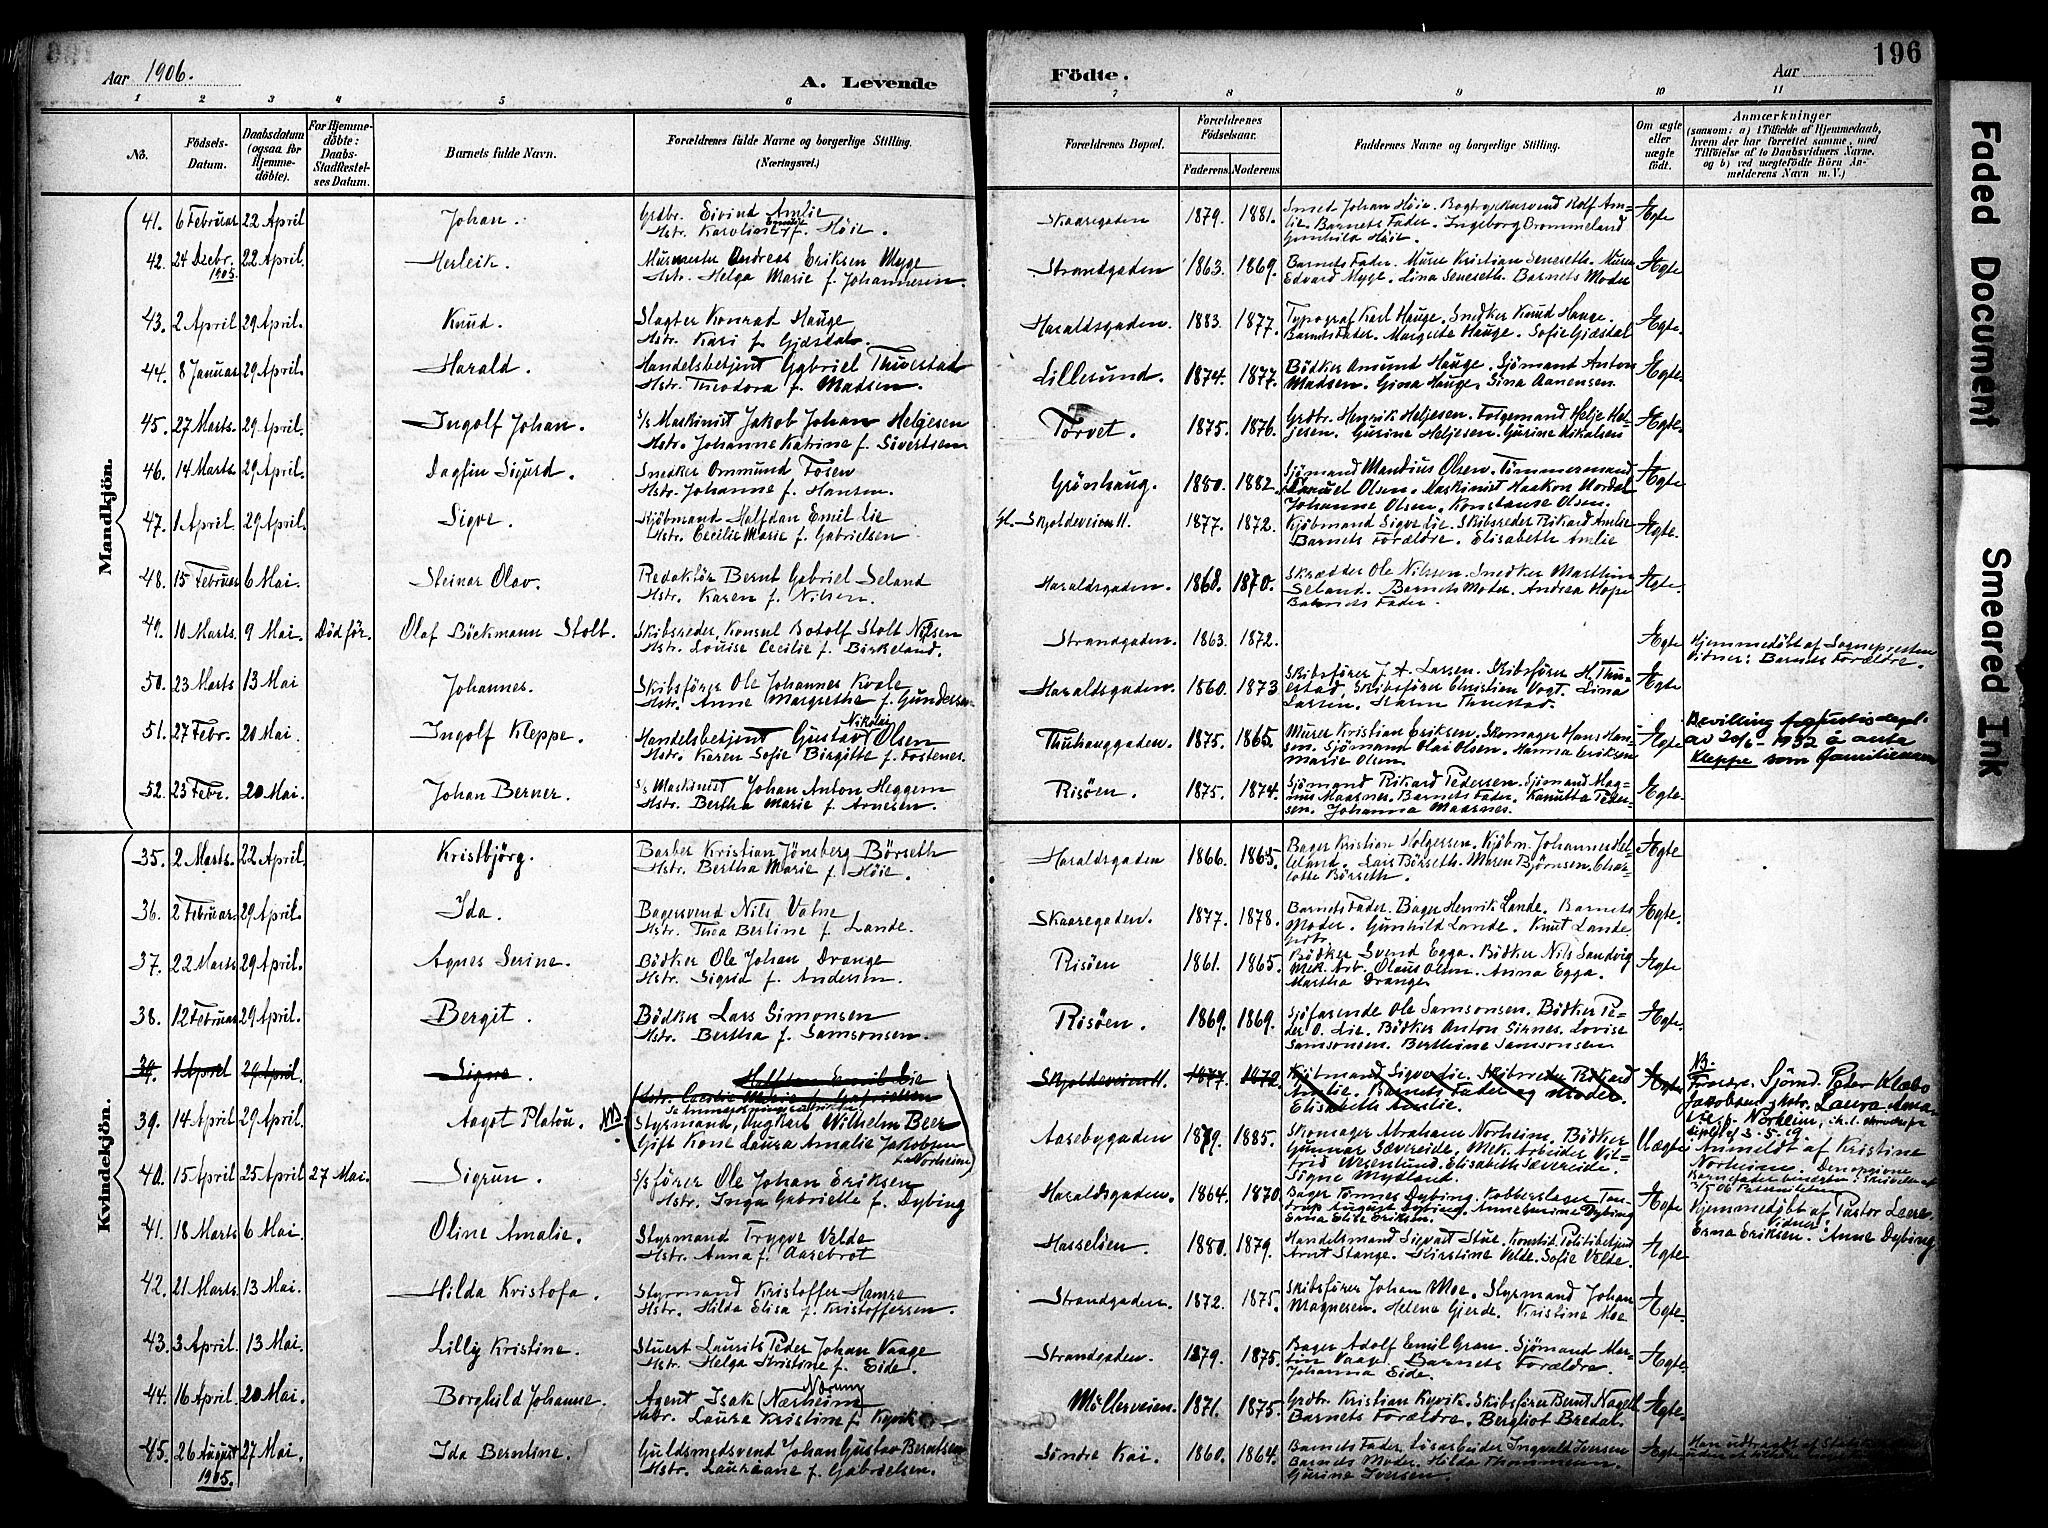 196
Aar 1906.
A. Levende
Födte.
Aar
1 2 3 4 5 6 7 8 9 10 11
No.
Födsels-Datum.
Daabsdatum (ogsaa for Hjemmedöbte).
For Hjemmedöbte: Daabs-Stadfæstelses Datum.
Barnets fulde Navn.
Forældrenes fulde Navne og borgerlige Stilling. (Næringsvei.)
Forældrenes Bopæl.
Forældrenes Födselsaar.
Faderens. Moderens.
Faddernes Navne og borgerlige Stilling.
Om ægte eller uægte født.
Anmærkninger
(saasom: a) i Tilfælde af Hjemmedaab, hvem der har forrettet samme, med Tilföielse af to Daabsvidners Navne, og b) ved uægtefödte Börn Anmelderens Navn m. V.)
Mandkjön.
41. 6 Februar 22 April Johan. Grdbr. Eivind Amlie Skaaregaden 1879. 1881. Smed Johan Höie. Ægte
Hstr. Karoline f. Höie. Barnets Fader. Ingeborg
Gunhild Höie.
42. 24 Dcbr. 1905. 22 April. Herleik. Murmester Andreas Eriksen Myge Strandgaden. 1863. 1869. Barnets Fader. Murer Kristian Ægte
Hstr. Helga Marie f. Johannesen. Edvard Mygge. Barnets Moder
43. 2 April. 29 April. Knud. Slagter Konrad Hauge Haraldsgaden. 1883. 1877. Typograf Karl Hauge. Snedker Knud Hauge. Ægte.
Hstr. Kari f. Gjesdal. Barnets Fader. Margrete Hauge. Sofie Gjesdal
44. 8 Januar 29 April. Harald. Handelsbetjent Gabriel Thuestad Lillesund. 1874. 1877. Bödker Amund Hauge. Sjömand Anton Ægte.
Hstr. Theodora f. Madsen. Madsen. Gina Hauge. Gina Aanensen
45. 27 Marts. 29 April. Ingolf Johan. s/s Maskinist Jakob Johan Helgesen Torvet. 1875. 1876. Grdbr. Henrik Heljesen. Ægte.
Hstr. Johanne Katrine f. Sivertsen Gurine Heljesen. Gurine Mikalsen
46. 14 Marts. 29 April. Dagfin Sigurd. Snedker Ommund Tosen Grönhaug. 1880. 1882. Sjömand Mandius Olsen. Tömmermand Ægte
Hstr. Johanne f. Hansen. Samuel Olsen. Maskinist Haakon Nordal
Johanne Olsen. Konstanse Olsen.
47. 1 April. 29 April. Sigve. Kjöbmand Halfdan Emil Lie Skjoldeveien 11. 1877. 1872. Kjöbmand Sigve Lie. Skibsreder Rikard Amlie Ægte.
Hstr. Cecilie Marie f. Gabrielsen Barnets Forældre. Elisabeth Amlie
48. 15 Februar 6 Mai. Steinar Olav. Redaktör Bernt Gabriel Seland Haraldsgaden. 1868. 1870. Skrædder Ole Nilsen. Snedker Marthin Ægte.
Hstr. Karen f. Nilsen. Seland. Barnets Moder. Andrea Hope
Barnets Fader.
49. 10 Marts. 9 Mai. Död för. Olaf Böckmann Stolt. Skibsreder, Konsul Botolf Stolt Nilsen Strandgaden. 1863. 1872. Ægte Hjemmedöbt af Sognepresten
Hstr. Louise Cecilie f. Birkeland. Vidner: Barnets Forældre.
50. 23 Marts 13 Mai Johannes. Skibsförer Ole Johannes Kvale Haraldsgaden. 1860. 1873 Skibsförer J. A. Larsen. Skibsförer H. Thuestad. Ægte
Hstr. Anne Margrethe f. Gundersen. Skibsförer Christian Vogt. Lina
Larsen. Karin Thuestad.
51. 27 Febr. 20 Mai. Ingolf Kleppe. Handelsbetjent Gustav Nikolai Olsen Thuhauggaden. 1875. 1865. Murer Kristian Eriksen. Skomager Hans Hansen. Ægte
Hstr. Karen Sofie Birgitte f. Tostenes. Sjömann Olai Olsen. Hanna Eriksen
Marie Olsen.
Bevilling fra justisdept. av 20/6-1932 å anta Kleppe som familienavn
52. 23 Febr. 20 Mai. Johan Berner. s/s Maskinist Johan Anton Heggem Risöen. 1875. 1874. Sjömand Rikard Pedersen. Sjömand Magnus Maarnes. Ægte.
Hstr. Bertha Marie f. Arnesen. Barnets Fader. Kanutta Pedersen.
Johanna Maarnes.
Kvindekjön.
35. 2 Marts. 22 April. Kristbjörg. Barber Kristian Jönsberg Börseth Haraldsgaden 1866. 1865. Bager Kristian Holgersen. Kjöbm. Johannes Ægte
Hstr. Bertha Marie f. Höie. Lars Börseth. Maren Björnsen. Charlotte Börseth.
36. 2 Februar. 29 April. Ida. Bagersvend Nils Valne Skaaregaden. 1877. 1878. Barnets Fader. Bager Henrik Lande. Barnets Ægte.
Hstr. Thea Bertine f. Lande. Moder. Gunhild Lande. Knut Lande.
Grdbr.
37. 22 Marts 29 April. Agnes Serine. Bödker Ole Johan Drange Risöen 1861. 1865. Bödker Svend Egga. Bödker Nils Sandvig Ægte
Hstr. Sigrid f. Andersen. Mek. Arb. Olaus Olsen. Anna Egga.
Martha Drange.
38. 12 Februar 29 April. Bergit. Bödker Lars Simonsen Risöen. 1869. 1869. Sjöfarende Ole Samsonsen. Bödker Peder O. Lie. Ægte.
Hstr. Bertha f. Samsonsen. Bödker Anton Sirnes. Lovise
Samsonsen. Berthine Samsonsen
39. 1 April 29 April. Signe. Halfdan Emil Lie Skjoldeveien 11. 1877. 1872. Kjöbmand Sigve Lie. Skibsreder Rikard Ægte
Hstr. Cecilie Marie f. Gabrielsen Amlie. Barnets Fader og Moder.
Elisabeth Amlie.
39. 14 April 29 April. Aagot Platou. NB Styrmand, Ungkarl Wilhelm Beer Aasebygaden 1879. 1885. Skomager Abraham Norheim. Bödker Uægte
Gift Kone Laura Amalie Jakobsen f. Norheim Gunnar Sævereide. Mek. Arbeider
Elisabeth Sævereide.
Signe Mydland.
NB. Forældre. Sjömd. Peter Klæbo Jakobsen og Hstr. Laura Amalie f. Norheim,
Anmeldt af Kristine Norheim. Den opgivne
40. 15 April 25 April 27 Mai. Sigrun. s/s förer Ole Johan Eriksen Haraldsgaden. 1864. 1870. Bager Tönnes Dybing. Kobberslager Ægte
Hstr. Inga Gabrielle f. Dybing August Dybing. Dybing
Erna Elise Eriksen.
Hjemmedöbt af Pastor
Vidner: Erna Eriksen. Anne Dybing
41. 18 Marts 6 Mai. Oline Amalie. Styrmand Trygve Velde Hasseløen. 1880. 1879. Handelsmand Sigvart Stue. Konstit. Politibetjent Ægte
Hstr. Anna f. Aasebröt Arnt Stange. Kirstine Velde. Sofie Velde.
42. 21 Marts. 13 Mai. Hilda Kristofa. Styrmand Kristoffer Hamre Strandgaden. 1872. 1875. Skibsförer Johan Moe. Styrmand Johan Ægte.
Hstr. Hilda Elisa f. Kristoffersen. Magnesen. Helena Gjerde. Kristine Moe
43. 3 April. 13 Mai. Lilly Kristine. Stuert Laurits Peder Johan Vaage Strandgaden. 1879. 1875. Bager Adolf Emil Gran. Sjömand Martin Vaage. Ægte.
Hstr. Helga Kristine f. Eide. Barnets Forældre.
Johanna Eide.
44. 16 April. 20 Mai. Borghild Johanne. Agent Isak (Nærheim) Norum Möllerveien. 1871. 1875. Grdbr. Kristian Kyvik. Skibsförer Bernt Nagell Ægte.
Hstr. Laura Kristine f. Kyvik Barnets Forældre. Bergliot Bredal.
45. 26 August 1905. 27 Mai. Ida Berntine. Guldsmedsvend Johan Gustav Berntsen Söndre Kai. 1860. 1864. Barnets Fader. Lösarbeider Ingvald Iversen Ægte
Hstr. Lauriane f. Gabrielsen. Barnets Moder. Hilda Thommesen.
Gurine Iversen.
Faded Document
Smeared Ink